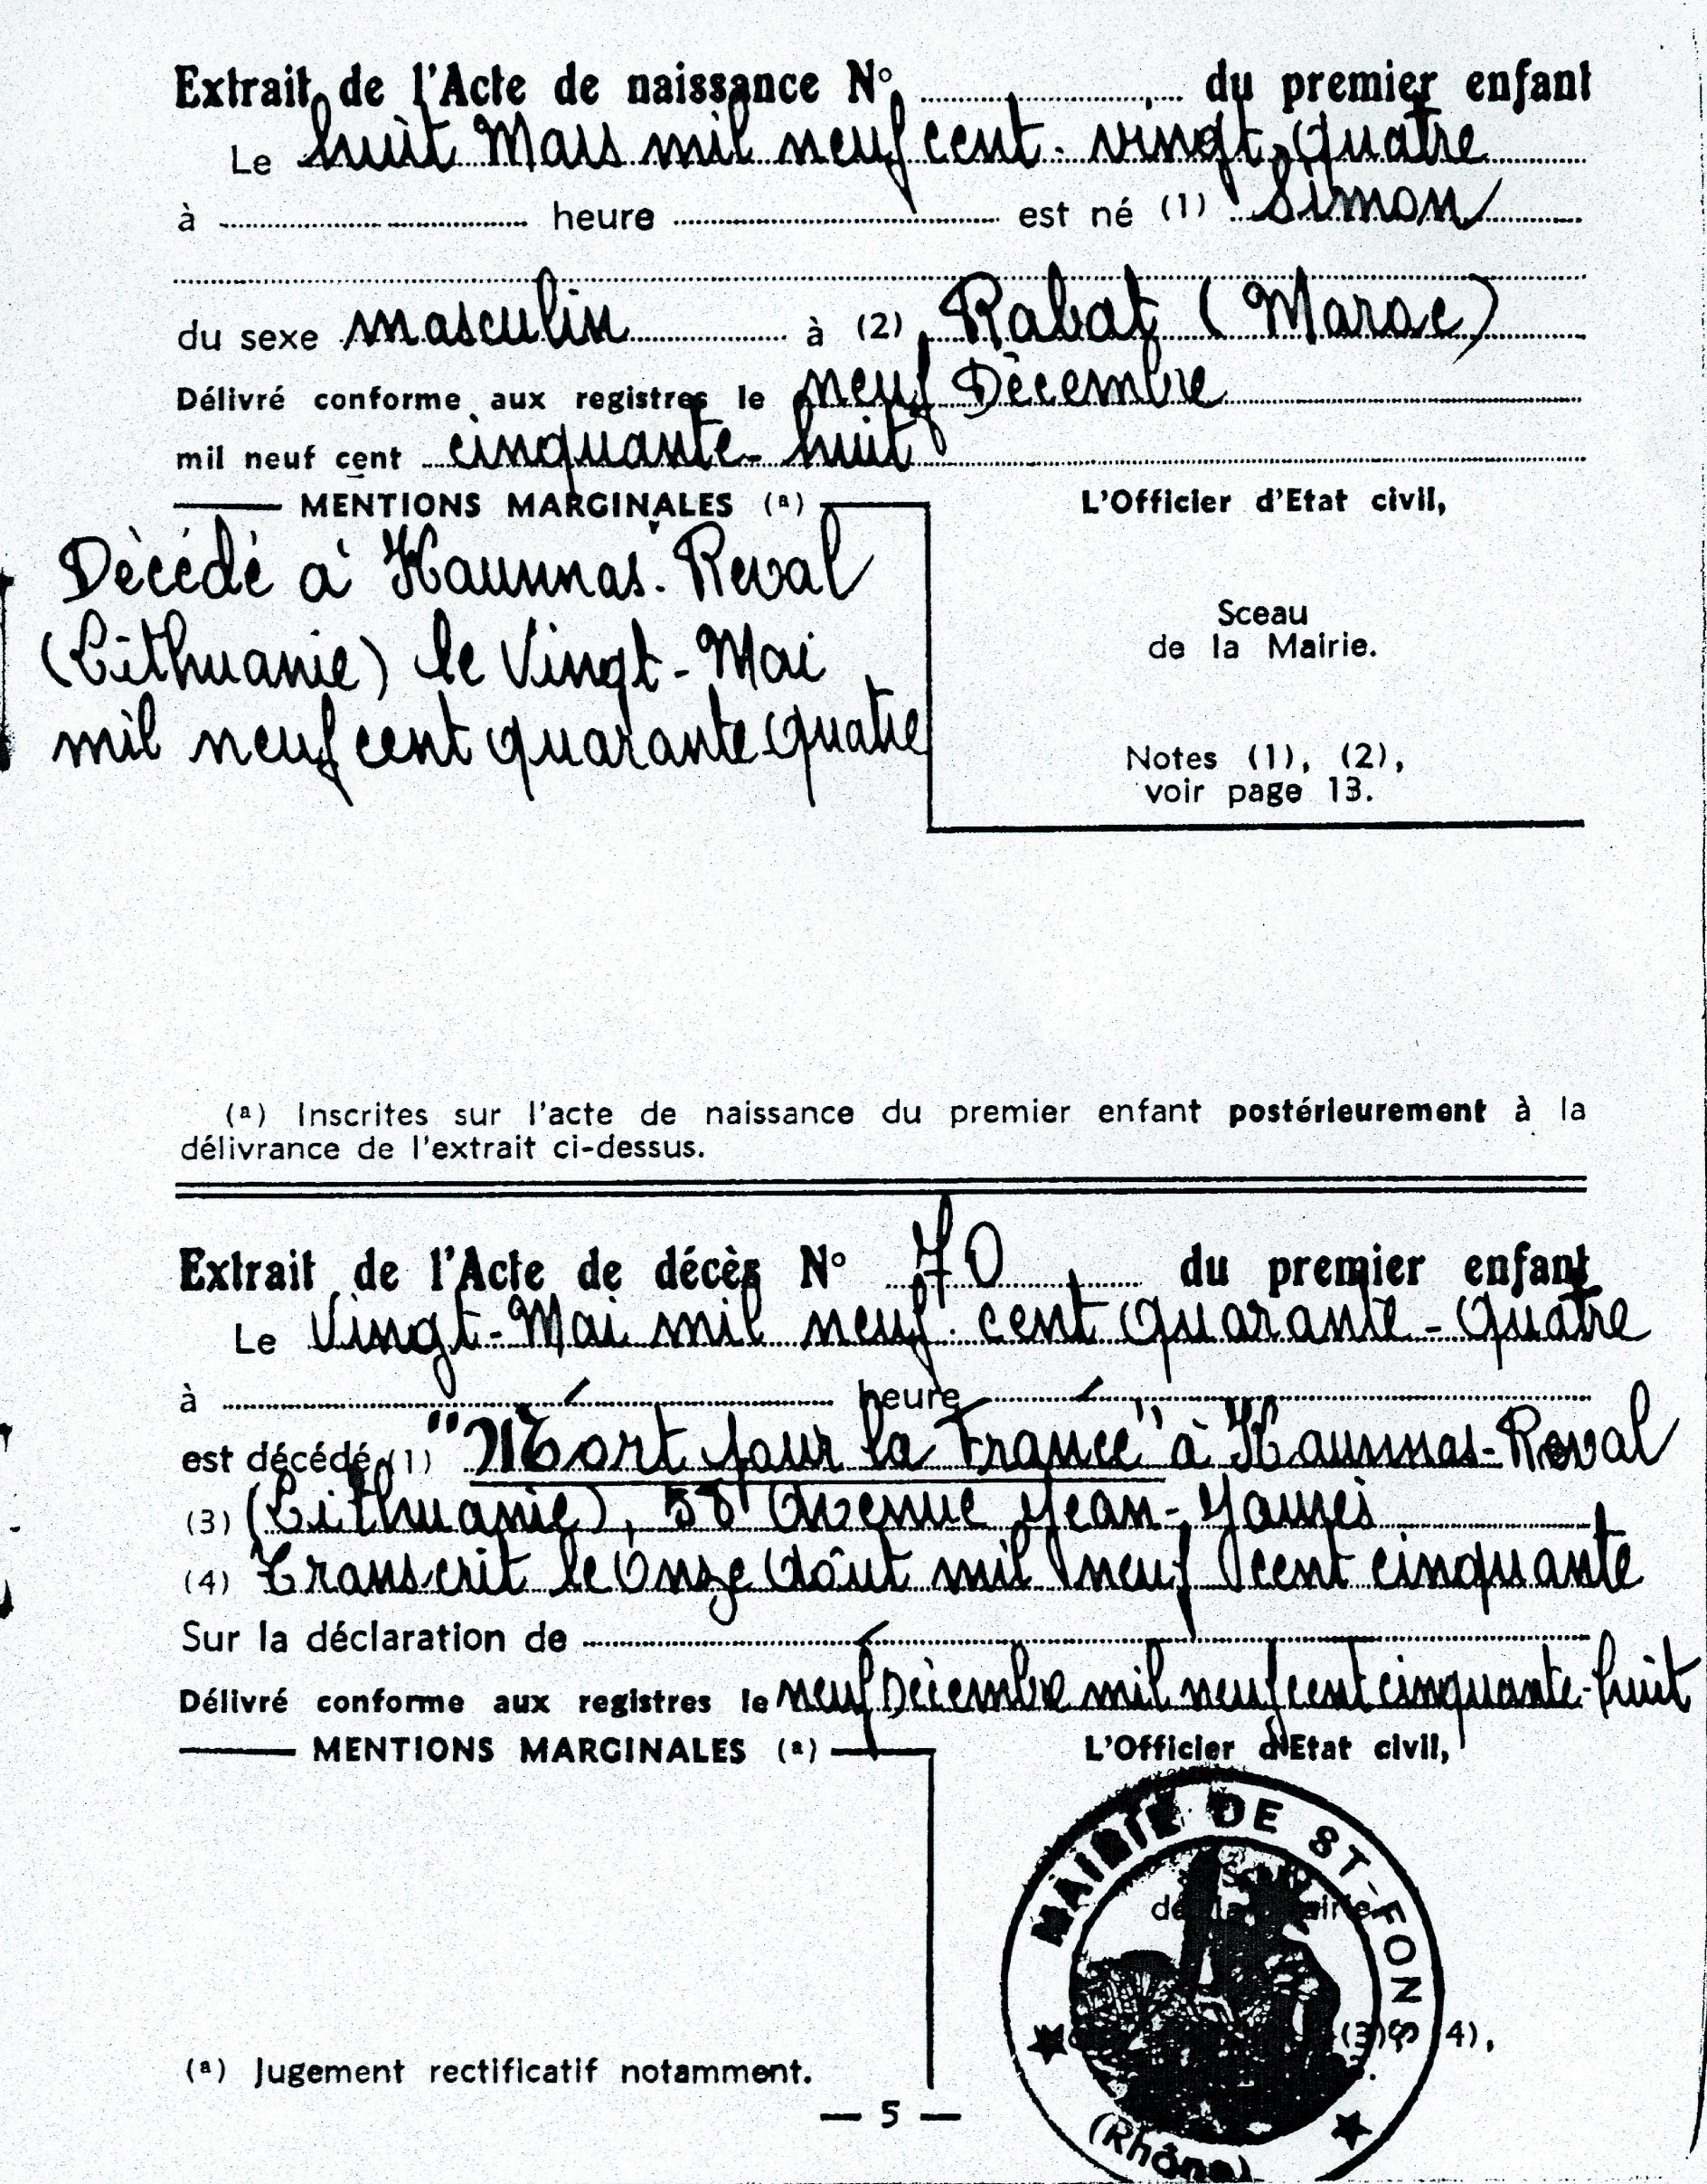 Extrait de l'Acte de naissance N° du premier enfant
Le huit Mars mil neuf cent-vingt-quatre
à heure est né (1) Simon
du sexe masculin à (2) Rabat (Maroc)
Délivré conforme aux registres le neuf Décembre
mil neuf cent cinquante-huit
MENTIONS MARGINALES (a)
Dècédé à Kaunnas-Reval
(Lithuanie) le Vingt-Mai
mil neuf cent quarante quatre
L'Officier d'Etat civil,
Sceau
de la Mairie.
Notes (1), (2),
voir page 13.
(a) Inscrites sur l'acte de naissance du premier enfant postérieurement à la
délivrance de l'extrait ci-dessus.
Extrait de l'Acte de décès N° 70 du premier enfant
Le Vingt-Mai mil neuf-cent Quarante-Quatre
à heure
est décédé (1) "Mort pour la France" à Kaunnas-Reval
(3) (Lithuanie), 58 Avenue Jean-Jaurès
(4) Transcrit le Onze Août mil neuf cent cinquante
Sur la déclaration de
Délivré conforme aux registres le neuf Décembre mil neuf cent cinquante-huit
MENTIONS MARGINALES (a)
L'Officier d'Etat civil,
MAIRIE DE ST-FONS
(Rhône)
(3) (4),
(a) Jugement rectificatif notamment.
— 5 —